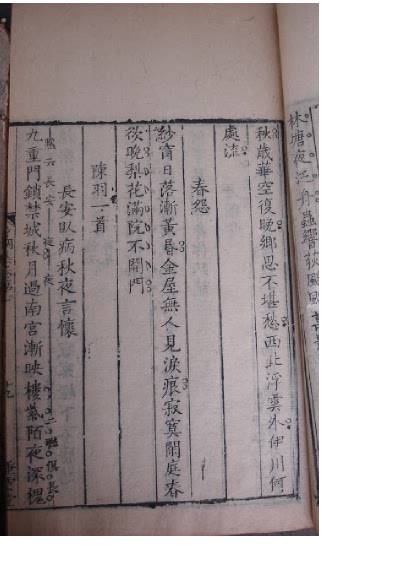 林塘夜泛舟蟲響荻颼颼萬
秋歲華空復晚鄉思不堪愁西北浮雲外伊川何
處流
春怨
紗窗日落漸黃昏金屋無人見淚痕寂寞閑庭春
欲晚梨花滿院不開門
陳羽一首
長安臥病秋夜言懷
九重門鎖禁城秋月過南宮漸映樓紫陌夜深槐